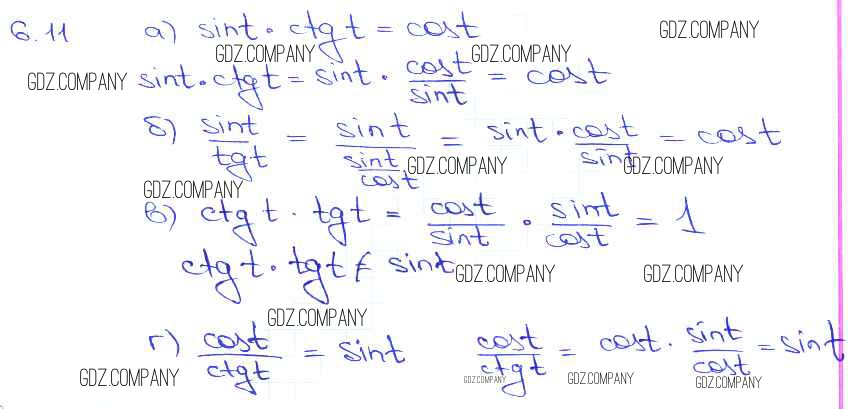 6.11 а) sint · ctg t = cost GDZ.COMPANY
GDZ.COMPANY GDZ.COMPANY
GDZ.COMPANY sint · ctg t = sint · cost/sint = cost
б) sint/tgt = sint/(sint/cost) = sint · cost/sint = cost
GDZ.COMPANY GDZ.COMPANY
GDZ.COMPANY
в) ctg t · tgt = cost/sint · sint/cost = 1
ctgt · tgt ≠ sint GDZ.COMPANY GDZ.COMPANY
GDZ.COMPANY
г) cost/ctgt = sint cost/ctgt = cost · sint/cost = sint
GDZ.COMPANY GDZ.COMPANY GDZ.COMPANY GDZ.COMPANY